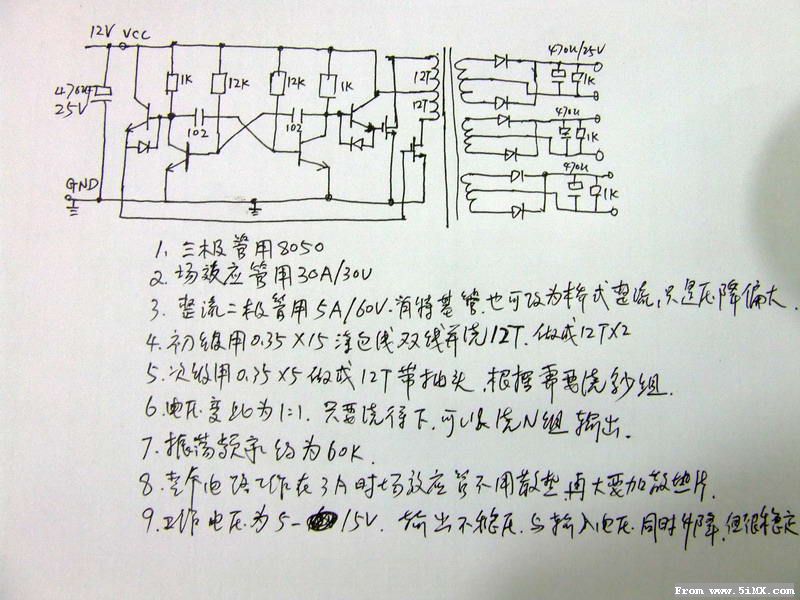 12V VCC
470u/25V
1K 12K 12K 1K
12T
12T
1K
470u
25V
102 102
470u
1K
GND
470u
1K
1. 三极管用8050
2. 场效应管用30A/30V
3. 整流二极管用5A/60V.肖特基管.也可改为桥式整流,只是压降偏大.
4. 初级用0.35×15漆包线双线并绕12T.做成12T×2
5. 次级用0.35×5做成12T带抽头,根据需要绕多组.
6. 电压变比为1:1.只要绕得下,可以绕N组输出.
7. 振荡频率约为60K.
8. 整个电路工作在3A时场效应管不用散热,再大要加散热片.
9. 工作电压为5-15V. 输出不稳压.与输入电压同时升降.但很稳定
From www.5iMX.com